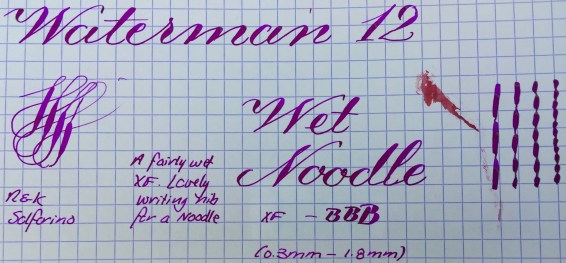 Waterman 12
Wet
Noodle
A fairly wet
XF. Lovely
writing nib
for a Noodle
R&K
Solferino
XF - BBB
(0.3mm - 1.8mm)